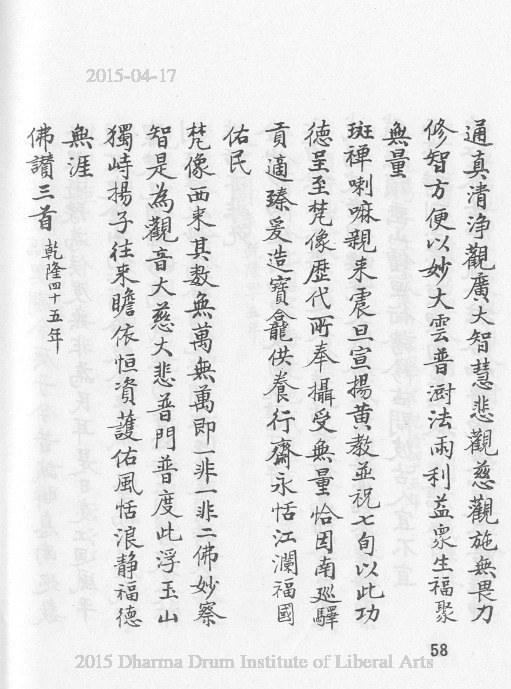 2015-04-17
通真清淨觀廣大智慧悲觀慈觀施無畏力
修智方便以妙大雲普澍法雨利益眾生福聚
無量
班禪喇嘛親來震旦宣揚黃教並祝七旬以此功
德呈至梵像歷代所奉攝受無量恰因南巡驛
貢適臻爰造寶龕供養行齋永恬江瀾福國
佑民
梵像西來其數無萬無萬即一非一非二佛妙察
智是為觀音大慈大悲普門普度此浮玉山
獨峙揚子往來瞻依恒資護佑風恬浪靜福德
無涯
佛讚三首 乾隆四十五年
58
2015 Dharma Drum Institute of Liberal Arts